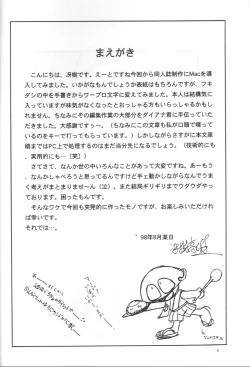 まえがき
こんにちは、冴樹です。えーとですね今回から同人誌制作にMacを導
入してみました。いかがなもんでしょうか表紙はもちろんですが、フキ
ダシの中を手書きからワープロ文字に変えてみました。本人は結構気に
入っていますが味気がなくなったとおっしゃる方もいらっしゃるかもし
れません。ちなみにその編集作業の大部分をダイアナ君に手伝っていた
だきました。大感謝ですぅ〜。（ちなみにこの文章も私が口頭で喋って
いるのをキーで打ってもらっています。）しかしながらさすがに本文原
稿まではPC上で処理するのはまだ当分先になるでしょう。（技術的にも
、実用的にも…（笑））
さてさて、なんか世の中いろんなことがあって大変ですね。あーもう
、なんかしゃべろうと思ってるんですけど手ェ動かしながらなんでうま
く考えがまとまりませ〜ん（泣）。また結局ギリギリまでウダウダやっ
ております。困ったもんです。
そんなワケで今回も突発的に作ったモノですが、お楽しみいただけれ
ば幸いです。
それでは…。
'98年8月某日